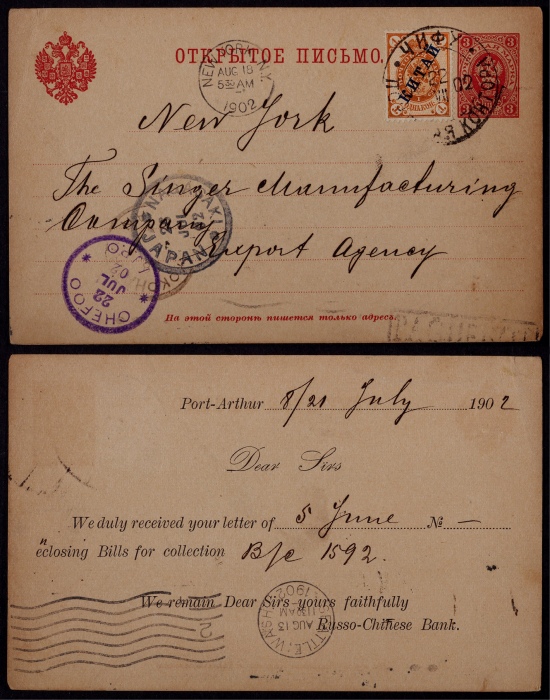 ОТКРЫТОЕ ПИСЬМО.
NEW YORK, N.Y.
AUG 18
5 30 AM
1902
КИТАЙ
ЧИФУ
02
3
3
3
3
New York
The Singer Manufacturing
Company
Export Agency
NAGASAKI
28
JUL
02
JAPAN
CHEFOO
22
JUL
02
На этой сторонѣ пишется только адресъ.
Port-Arthur 8/21 July 1902
Dear Sirs
We duly received your letter of 5 June № —
enclosing Bills for collection B/c 1592.
We remain Dear Sirs yours faithfully
Russo-Chinese Bank.
SEATTLE, WASH.
AUG 13
1902
2